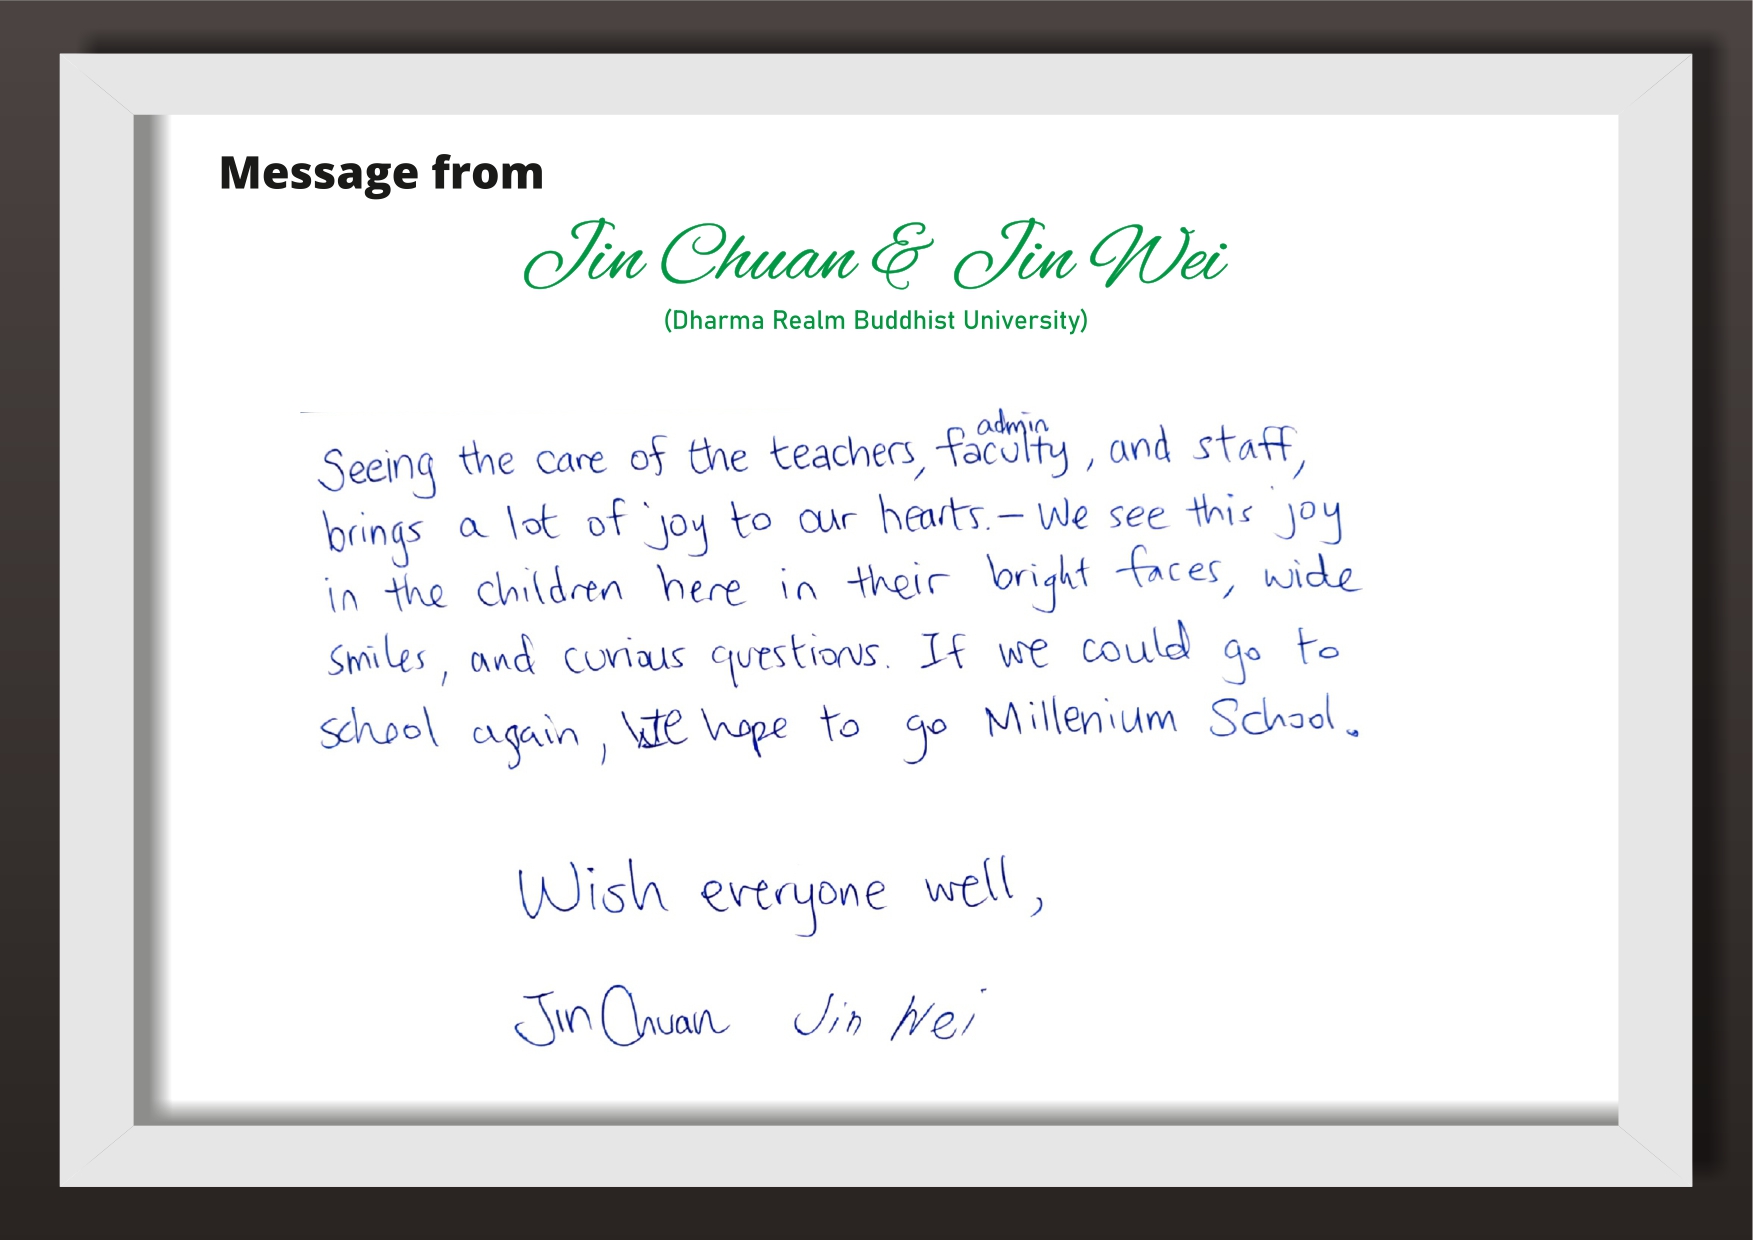 Message from
Jin Chuan & Jin Wei
(Dharma Realm Buddhist University)
admin
Seeing the care of the teachers, faculty, and staff,
brings a lot of joy to our hearts. – We see this joy
in the children here in their bright faces, wide
smiles, and curious questions. If we could go to
school again, We hope to go Millenium School.
Wish everyone well,
Jin Chuan Jin Wei